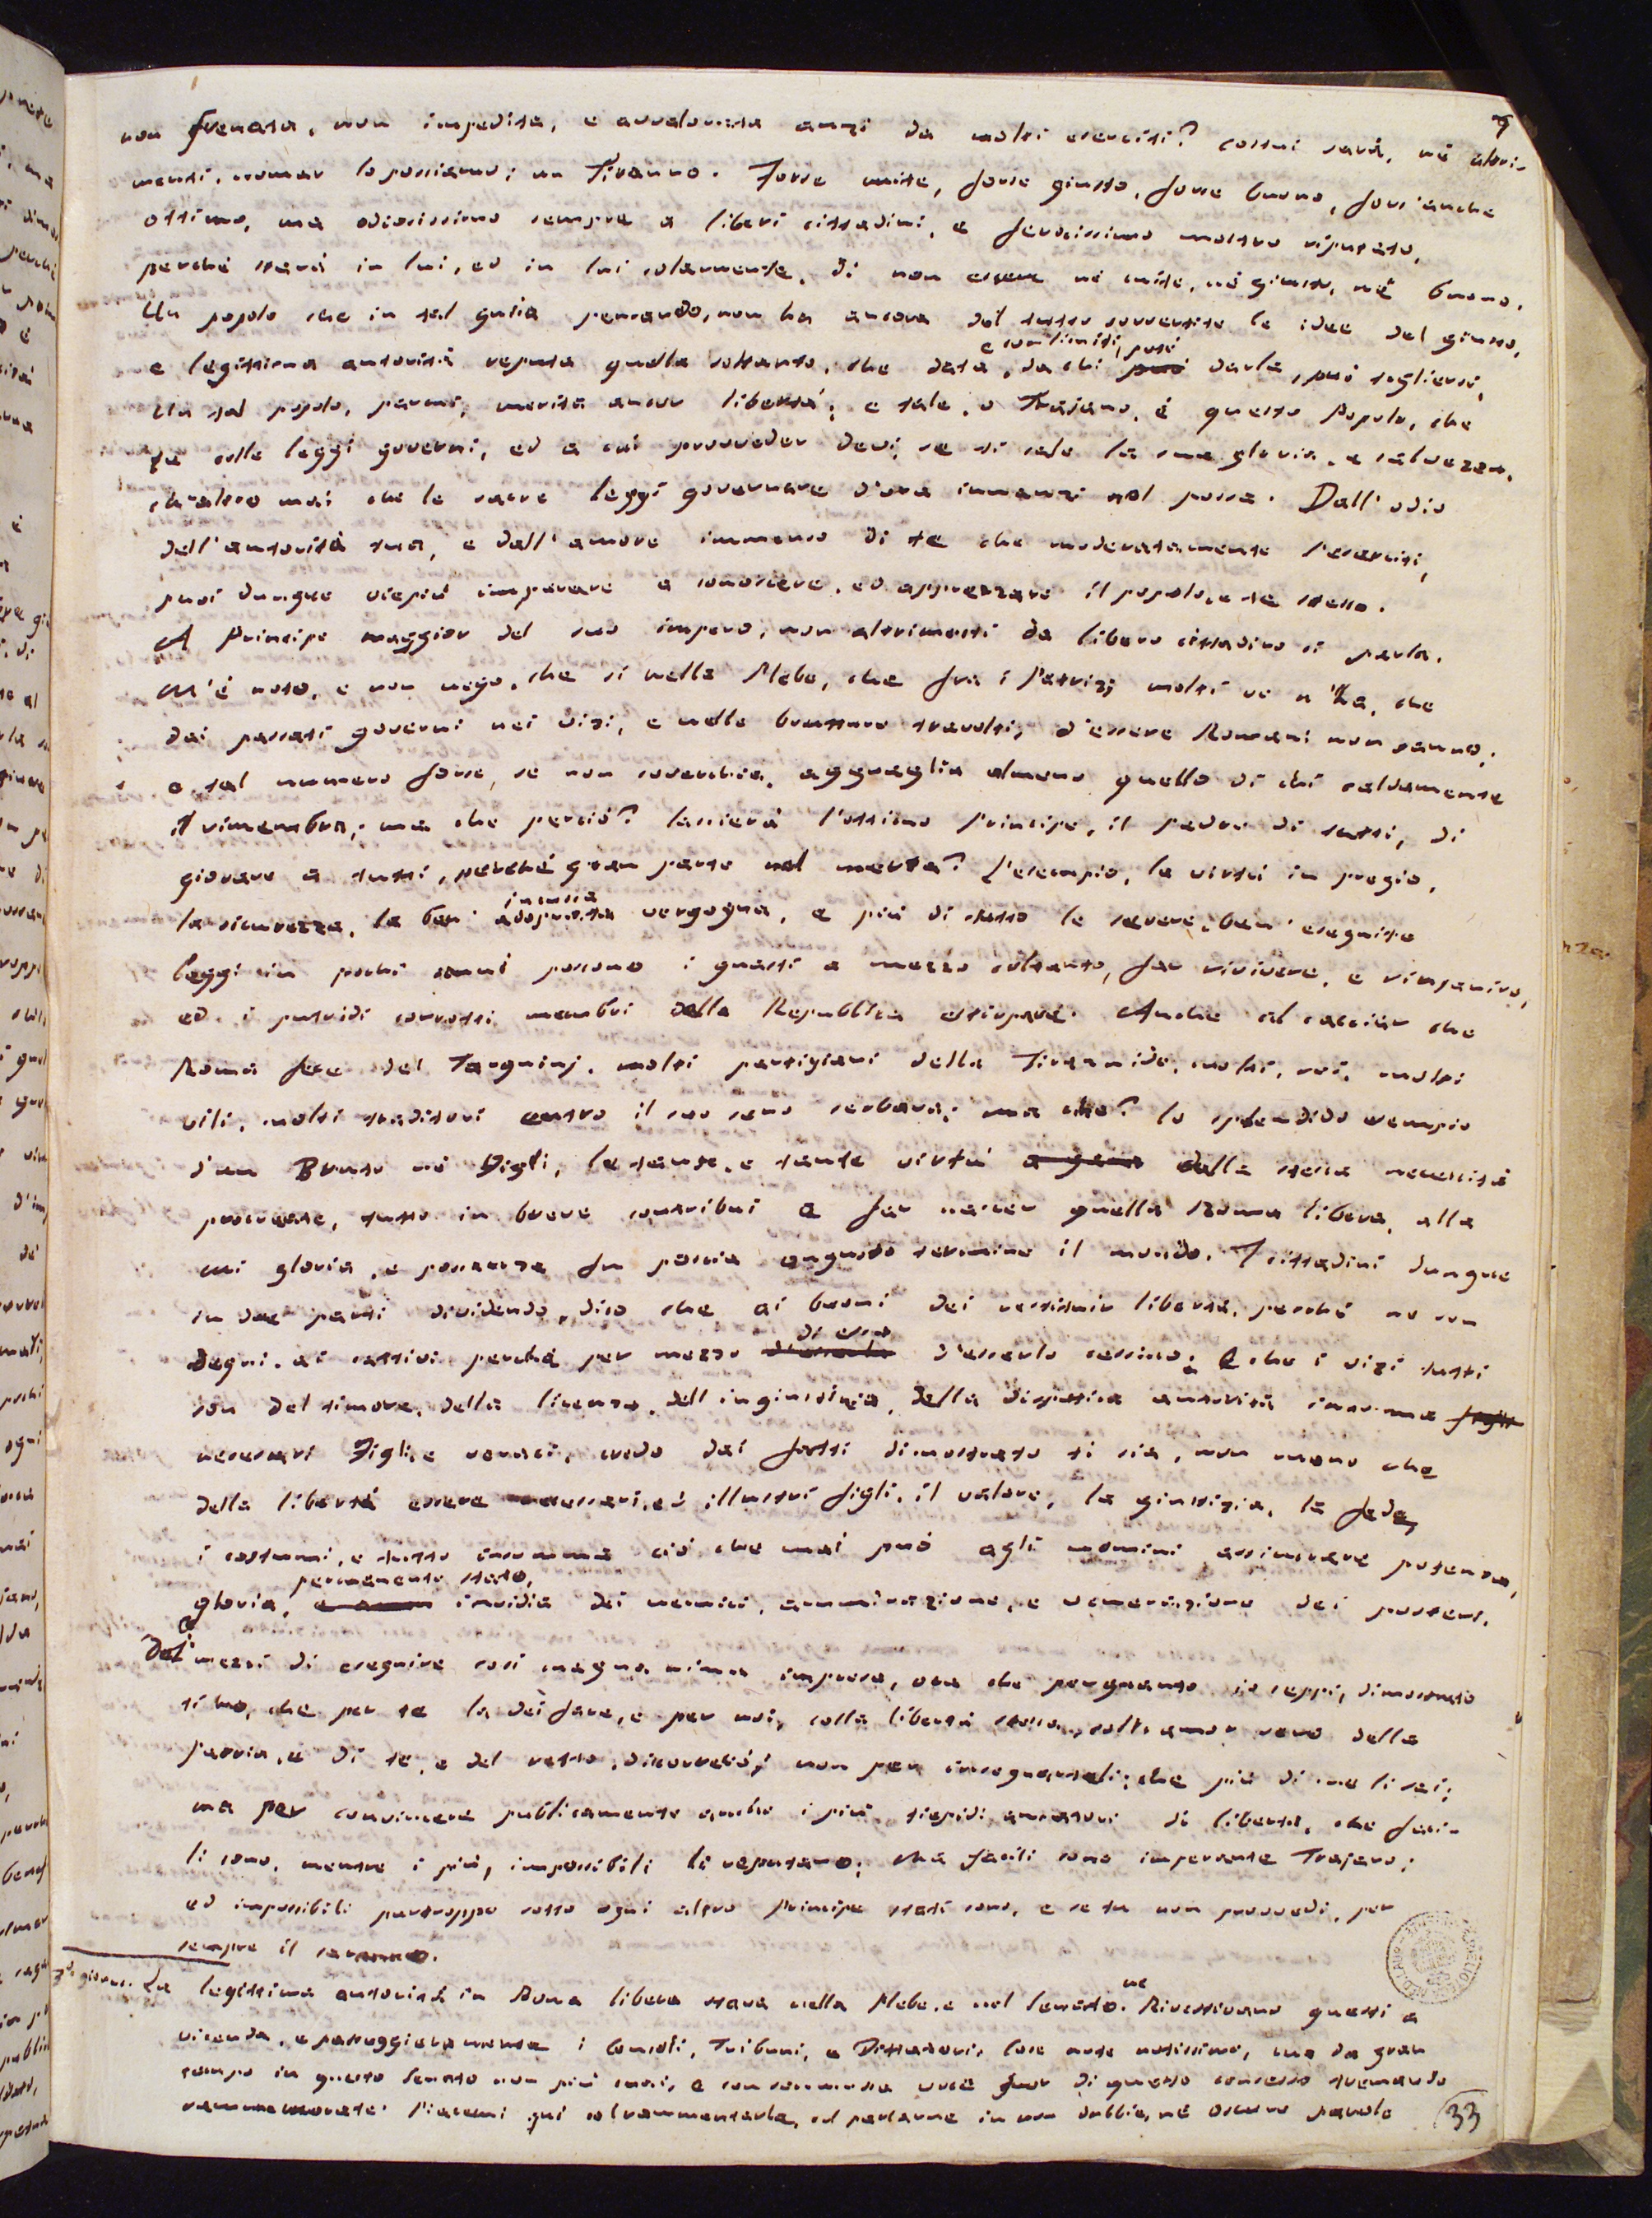 7
non frenata, non impedita, e avvalorata anzi da molti eserciti? costui sarà, nè altri-
menti nomar lo possiamo; un Tiranno. Forse mite, forse giusto, forse buono, fors'anche
ottimo, ma odiosissimo sempre a liberi cittadini, e ferocissimo mostro riputato,
perchè starà in lui, ed in lui solamente, di non essere nè mite, nè giusto, nè buono.
Un popolo che in tal guisa pensando, non ha ancora del tutto sovvertite le idee del giusto,
e con limiti, potè
e legittima autorità reputa quella soltanto, che data, da chi può darla, può togliersi,
Un tal popolo, parmi, merita ancor libertà; e tale, o Trajano, è questo Popolo, che
tu colle leggi governi, ed a cui provveder devi, se ti cale la sua gloria, e salvezza,
ch'altro mai che le sacre leggi governare d'ora innanzi nol possa. Dall'odio
dell'autorità tua, e dall'amore immenso di te che moderatamente l'eserciti,
puoi dunque viepiù imparare a conoscere, ed apprezzare il popolo, e te stesso.
A Principe maggior del suo impero, non altrimenti da libero cittadino si parla.
M'è noto, e non nego, che sì nella Plebe, che fra i Patrizj molti ve n'ha, che
dai passati governi nei vizi, e nelle brutture travolti, d'essere Romani non sanno;
e tal numero forse, se non soverchia, agguaglia almeno quello di chi caldamente
il rimembra; ma che perciò? lascierà l'ottimo Principe, il padre di tutti, di
giovare a tutti, perchè gran parte nol merta? l'esempio, le virtù in pregio,
incussa
la sicurezza, la ben' adoprata vergogna, e più di tutto le severe, ben' eseguite
leggi in pochi anni possono i guasti a mezzo soltanto, far rivivere, e rinsanire,
ed i putridi corrotti membri della Repubblica estirpare. Anche al cacciar che
Roma fece dei Tarquinj, molti partigiani della Tirannide, molti, rei, molti
vili, molti traditori entro il suo seno serbava; ma che? lo splendido esempio
d'un Bruto nè Figli, le tante, e tante virtù dalla stessa necessità
procreate, tutto in breve contribuì a far nascer quella Roma libera, alla
cui gloria, e possanza fu poscia angusto termine il mondo. I cittadini dunque
in due parti dividendo, dico che ai buoni dei restituir libertà, perchè ne son
di essa
degni, ai cattivi perchè per mezzo d'esserlo cessino; E che i vizi tutti
son del timore, della licenza, dell'ingiustizia, della dispotica autorità insomma figli
necessari Figli, e veraci, credo dai fatti dimostrato ti sia, non meno che
della libertà essere necessari, ed illustri figli, il valore, la giustizia, la fede,
i costumi, e tutto insomma ciò che mai può agli uomini assicurare potenza,
permanente stato,
gloria, invidia dei nemici, ammirazione, e venerazione dei posteri.
Dei mezzi di eseguire così magnanima impresa, ora che perquanto io seppi, dimostrato
ti ho, che per te la dei fare, e per noi, colla libertà stessa, coll'amor vero della
patria, e di te, e del retto, discorrerò; non per insegnarteli, che più di me li sai;
ma per convincere pubblicamente anche i più tiepidi amatori di libertà, che faci-
li sono, mentre i più, impossibili li reputano; Ma facili sono imperante Trajano;
ed impossibili purtroppo sotto ogni altro Principe stati sono, e se tu non provvedi, per
sempre il saranno.
3º giorno. La legittima autorità in Roma libera stava nella Plebe, e nel Senato.
ne
Rivestivano questi a
vicenda, e passeggieramente i Consoli, Tribuni, e Dittatori, cose tutte notissime, ma da gran
tempo in questo Senato non più mai, e con sommessa voce fuor di questo consesso tremando
rammemorate. Piacemi qui rammentarle, ed parlarne in non dubbie, nè oscure parole
33